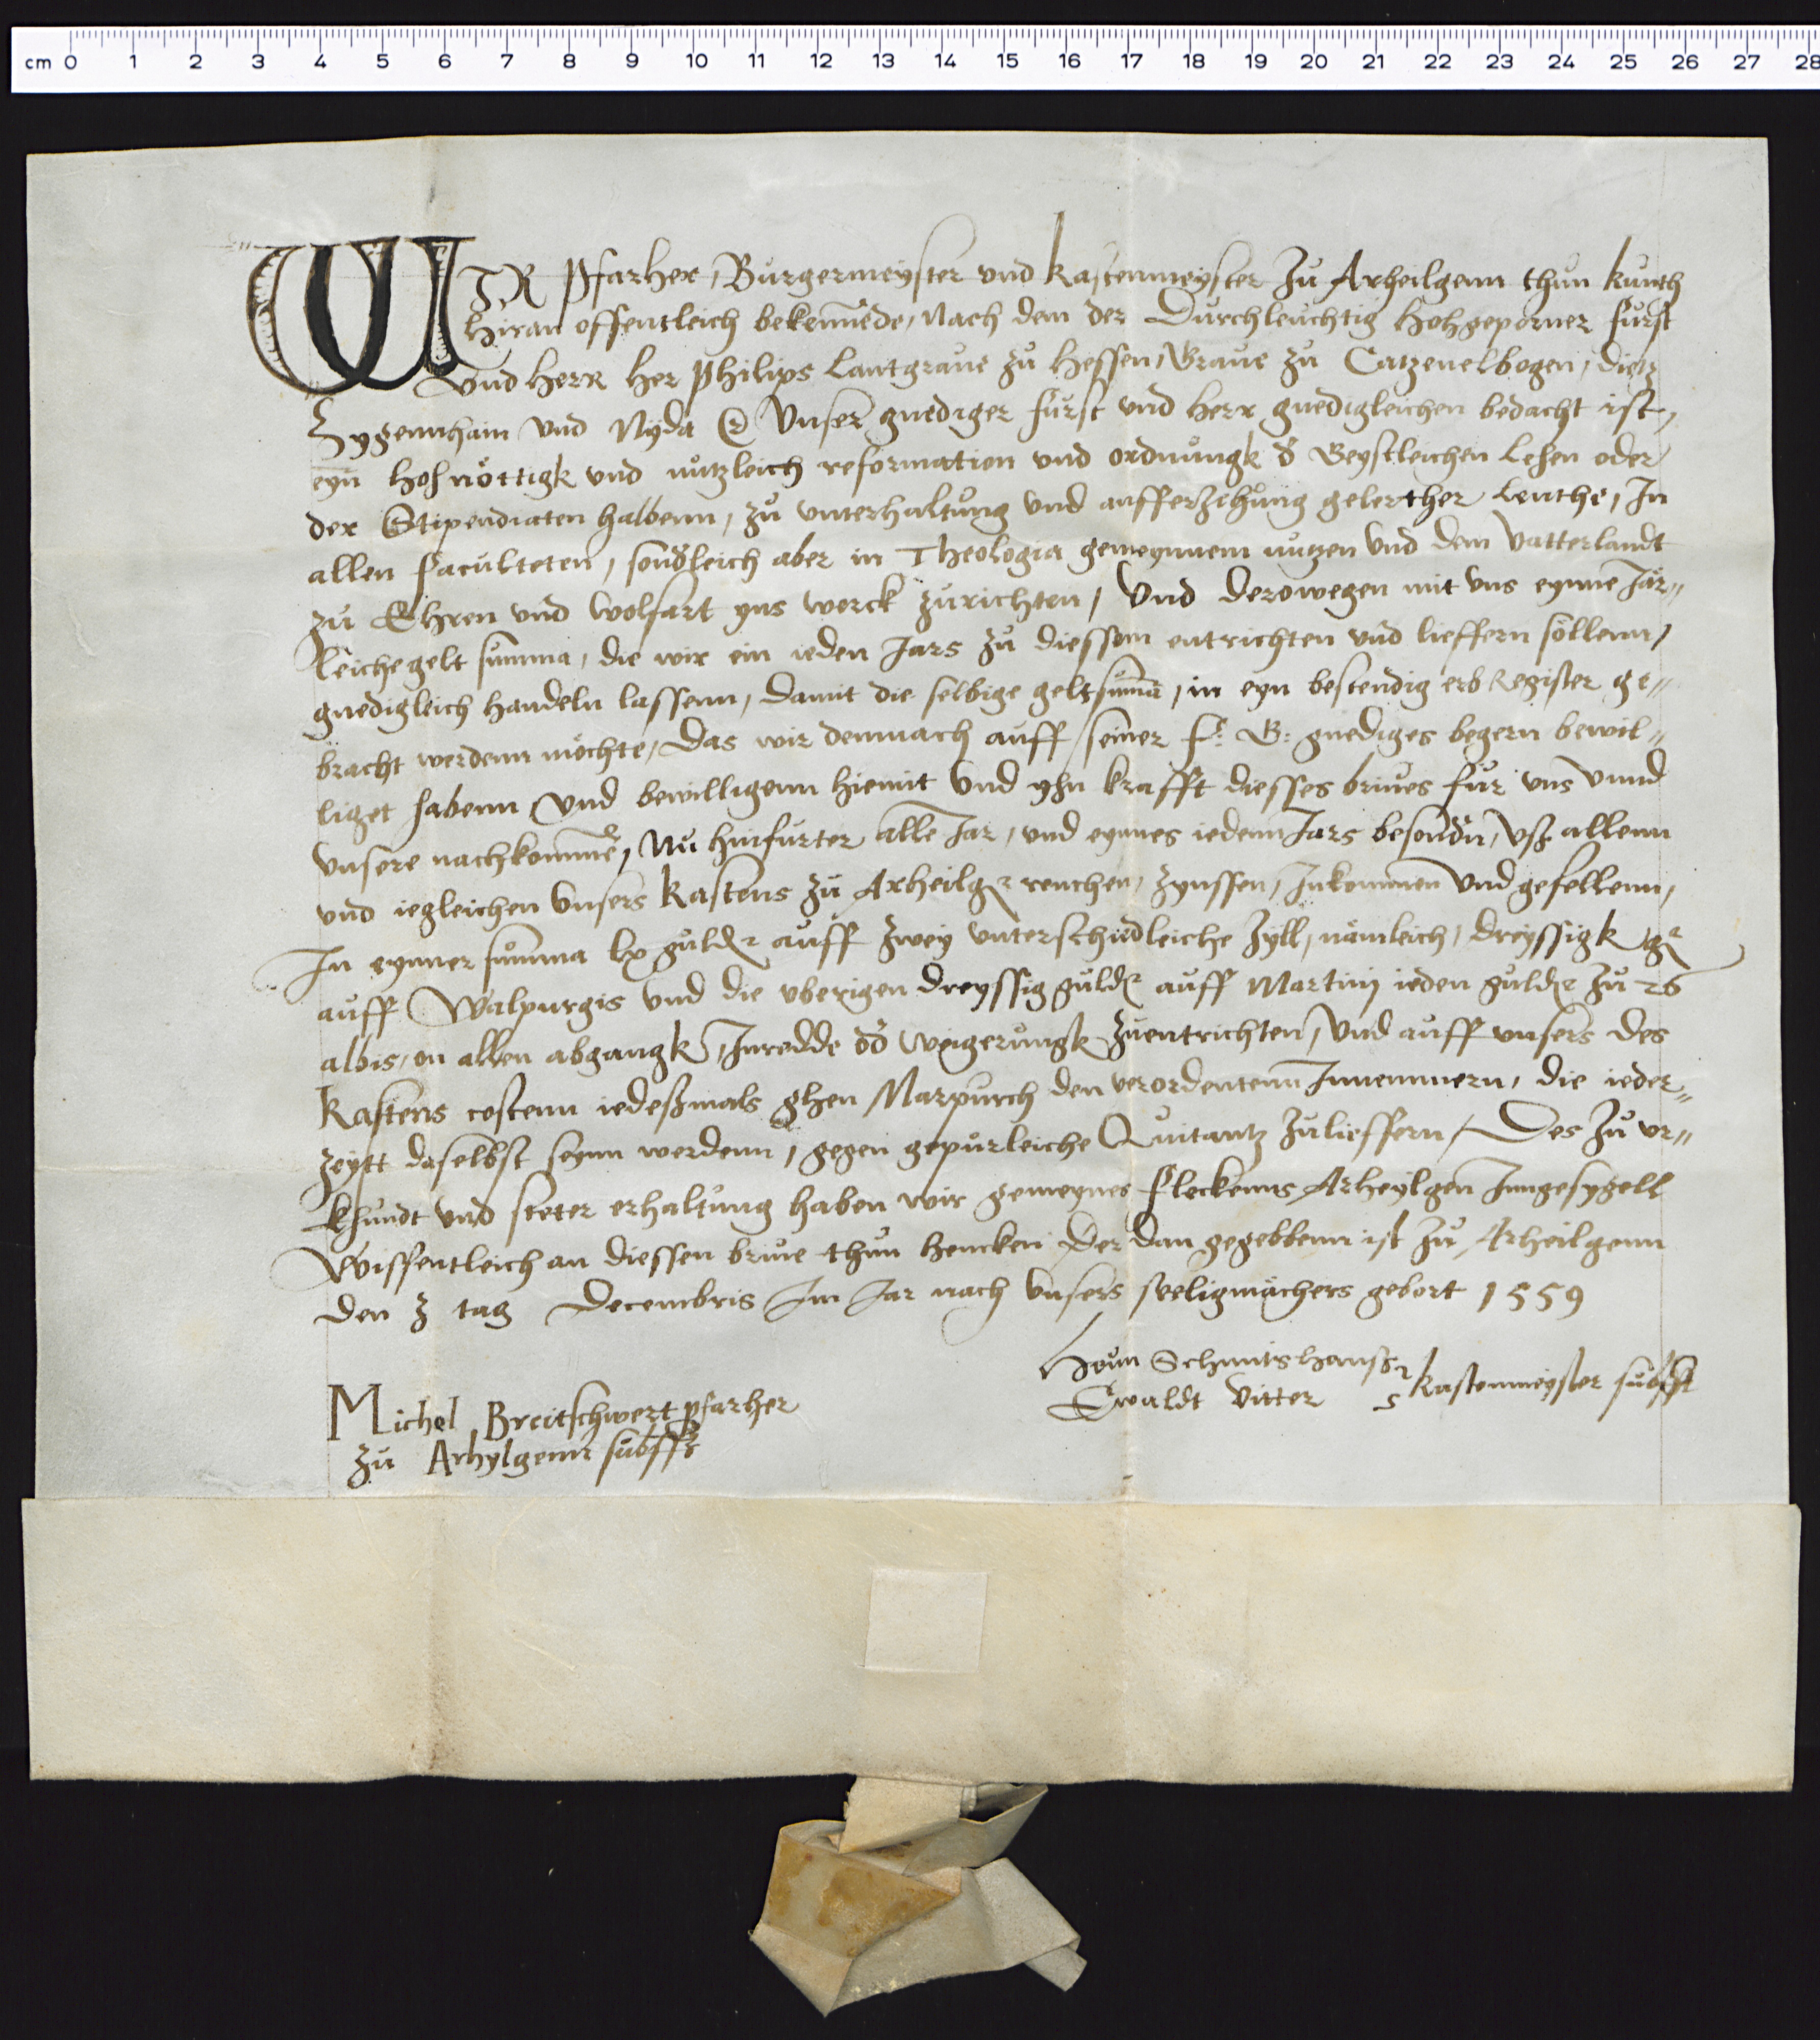 cm 0 1 2 3 4 5 6 7 8 9 10 11 12 13 14 15 16 17 18 19 20 21 22 23 24 25 26 27 28
WIR Pfarher, Burgermeyster vnd Kastenmeyster zu Arheilgenn thun kunth
hiran offentleich bekennede, Nach dem der Durchleuchtig Hochgeporner Furst
Vnd Herr Her Philips Lantgraue zu Hessen, Graue zu Catzenelbogen, dietz
Zygennhain vnd Nyda Vnser gnediger Furst vnd Herr gnedigleichen bedacht ist,
eyn hoh nöttigk vnd nutzleich reformation vnd ordnungk d Geystleichen Lehen oder
der Stipendiaten halbenn, zu vnterhaltung vnd aufferzihung gelerther Leuthe, In
allen Faculteten, sondleich aber in Theologia gemeynnem nutzen vnd dem Vatterlandt
zu Ehren vnd wolfart yns werck zurichten, Vnd derowegen mit vns eynne Jär„
leiche gelt summa, die wir ein ieden Jars zu diessem entrichten vnd lieffern söllenn,
gnedigleich handeln lassenn, damit die selbige geltsuma, in eyn bestendig erb Register ge„
bracht werdenn möchte, Das wir demnach auff seiner F: G: gnediges begern bewil„
liget habenn Vnd bewilligenn hiemit Vnd yhn krafft diesses briues für vns Vnnd
Vnsere nachkomme, Nu hinfurter alle Jar, vnd eynnes iedenn Jars besondn, Vß allenn
vnd iegleichen Vnsers Kastens zu Arheilg renthen, zynssen, Inkommen Vnd gefellenn,
In eynner summa lx guld auff zwey vnterschidleiche Zyll, nämleich, dreyssigk g
auff Walpurgis vnd die vberigen dreyssig guld auff Martinj ieden guld zu 26
albis, on allen abgangk, Inredde od weigerungk zuentrichten, Vnd auff vnsers des
Kastens costenn iedeßmals ghen Marpurch den verordentenn Innemmern, die ieder„
zeytt daselbst seynn werdenn, gegen gepurleiche Quitantz zulieffern, Des zu vr„
khundt vnd steter erhaltung haben wir gemeynes Fleckenns Arheylgen Inngesygell
Wissentleich an diessen briue thun hencken Der dan gegebbenn ist zu Arheilgenn
den 3 tag Decembris Im Jar nach Vnsers seeligmächers gebort 1559
Henn Schmitshansz
Ewaldt Vitter Kastenmeyster subsst
Michel Breitschwert pfarher
zu Arhylgenn subsst